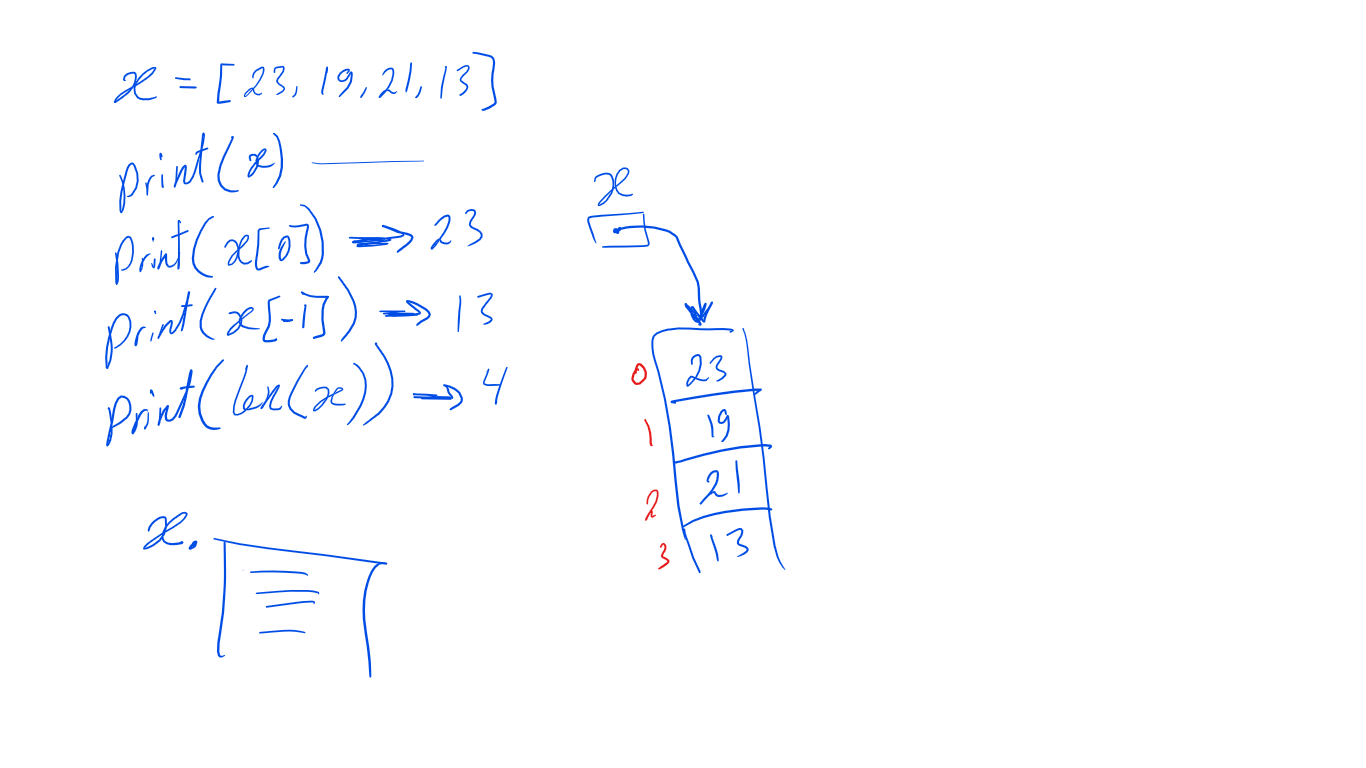 x = [23, 19, 21, 13]
print(x)
print(x[0]) → 23
print(x[-1]) → 13
print(len(x)) → 4
x.
x
0 23
1 19
2 21
3 13